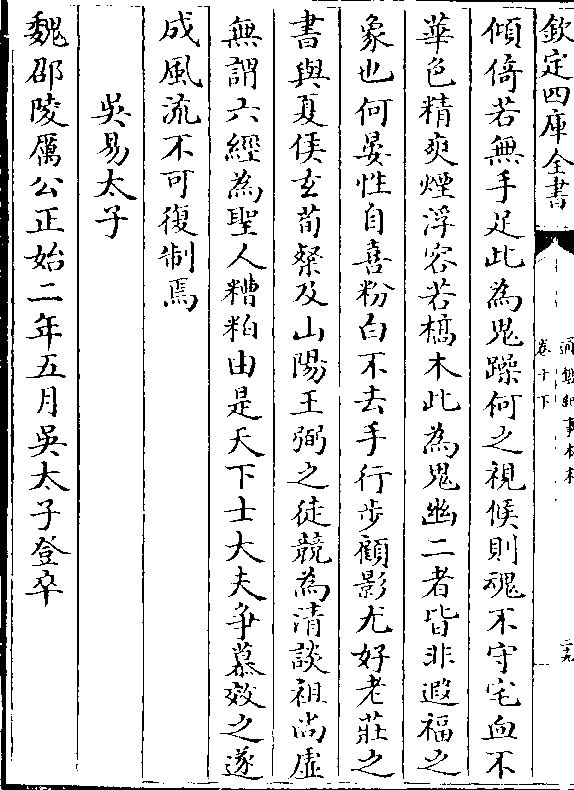 欽定四庫全書
通鑑紀事本末
卷十下
二九
傾倚若無手足此為鬼躁何之視候則魂不守宅血不
華色精爽煙浮容若槁木此為鬼幽二者皆非遐福之
象也何晏性自喜粉白不去手行步顧影尤好老莊之
書與夏侯玄荀粲及山陽王弼之徒競為清談祖尚虛
無謂六經為聖人糟粕由是天下士大夫爭慕效之遂
成風流不可復制焉
吳易太子
魏邵陵厲公正始二年五月吳太子登卒